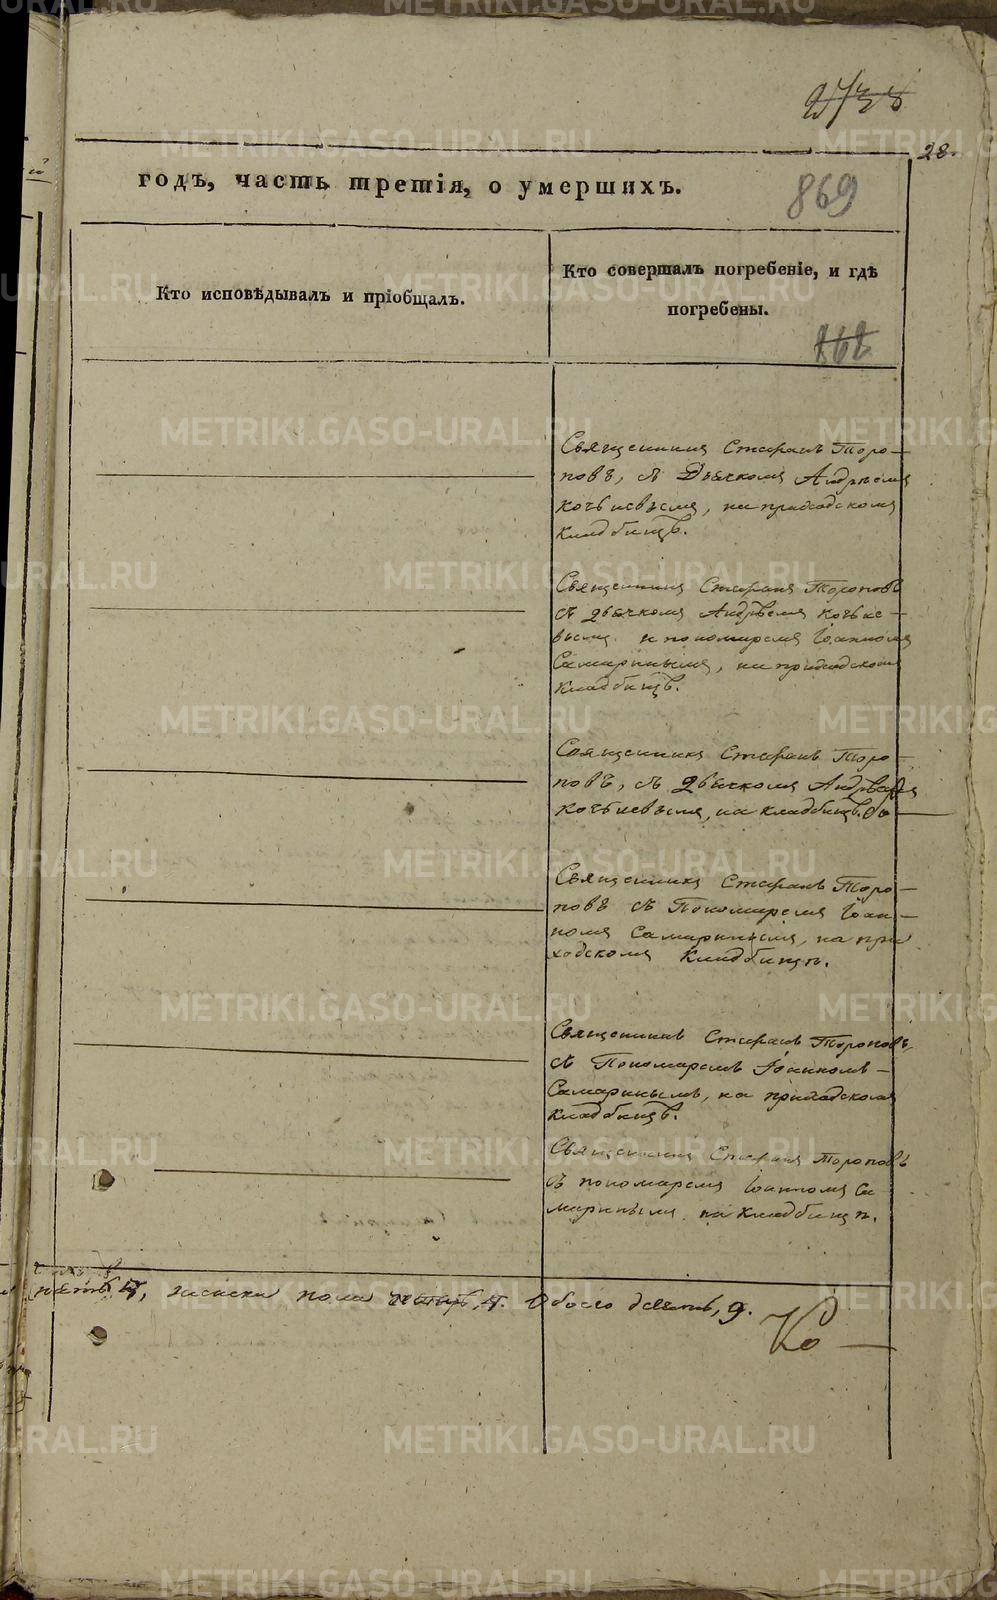 28.
годъ, часть третія, о умершихъ.
869
Кто исповѣдывалъ и пріобщалъ.
Кто совершалъ погребеніе, и гдѣ
погребены.
868
Священникъ Стефанъ Торо-
повъ, съ Дьячкомъ Андреемъ
на приходскомъ
кладбищѣ.
Священникъ Стефанъ Тороповъ
съ дьячкомъ Андреемъ
и пономаремъ Іоанномъ
Самаринымъ, на приходскомъ
кладбищѣ.
Священникъ Стефанъ Торо-
повъ, съ дьячкомъ Андреемъ
на кладбищѣ.
Священникъ Стефанъ Торо-
повъ съ Пономаремъ Іоан-
номъ Самаринымъ, на при
ходскомъ Кладбищѣ.
Священникъ Стефанъ Тороповъ,
съ Пономаремъ Іоанномъ
Самаринымъ, на приходскомъ
кладбищѣ.
Священникъ Стефанъ Тороповъ
съ пономаремъ Іоанномъ Са
маринымъ на Кладбищѣ.
женска пола четыре, 4. Обоего девять, 9.
METRIKI.GASO-URAL.RU